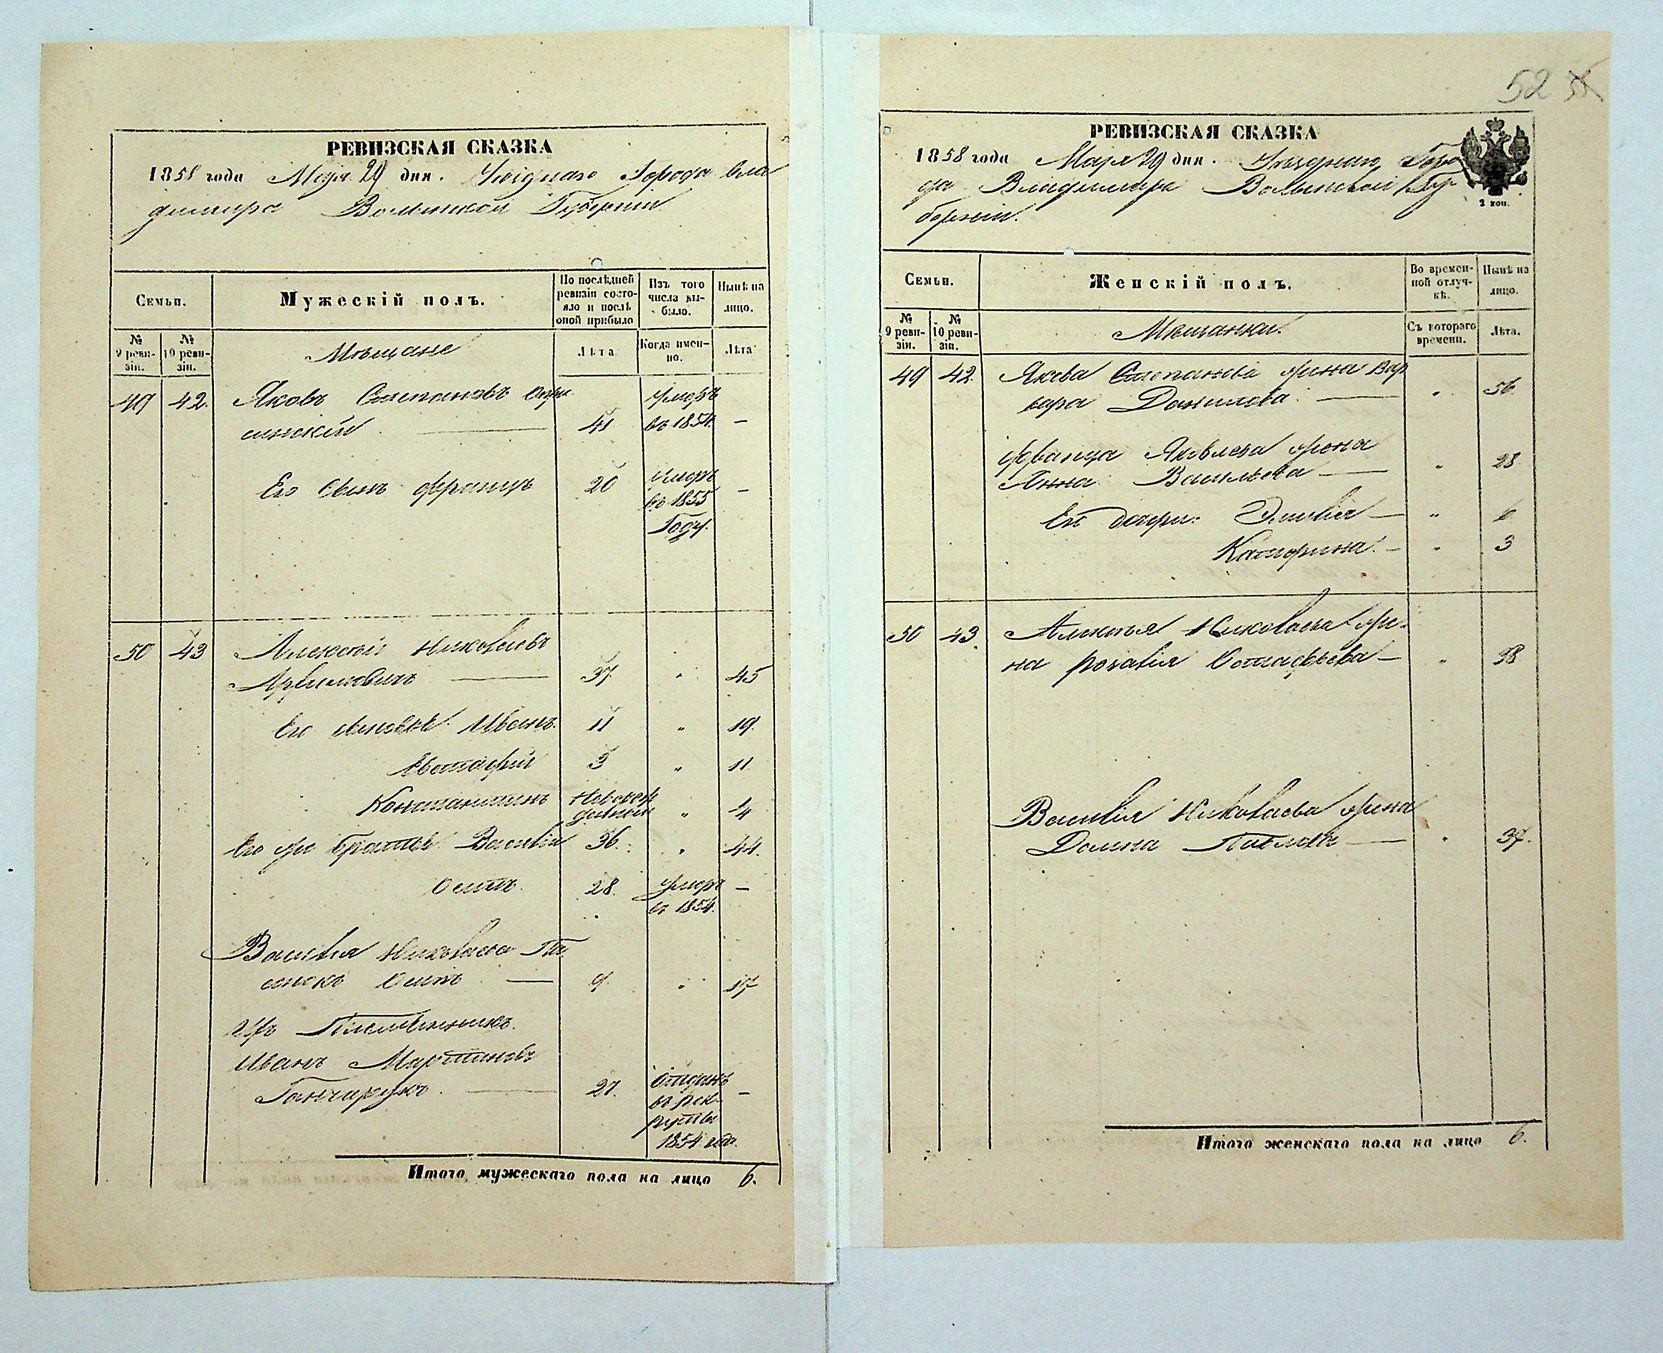 52
РЕВИЗСКАЯ СКАЗКА
1858 года Мая 29 дня. Уѣзднаго Города Вла
димира Волынской Губерніи
Семьи.
Мужескій полъ.
По послѣдней ревизіи состояло и послѣ оной прибыло
Изъ того числа выбыло.
Нынѣ на лицо.
№ 9 ревизіи.
№ 10 ревизіи.
Мѣщане
Лѣта
Когда именно.
Лѣта
49 42. Яковъ Степановъ
41 умеръ
въ 1854. —
Его Сынъ Францъ 20 умеръ —
въ 1855
Году.
50 43 Алексѣй Николаевъ
37 " 45
Его сыновья: Иванъ 11 " 19.
Евстафій 3 " 11
Константинъ " 4
Его же братья Василій 36. " 44.
Осипъ. 28. умеръ —
въ 1854.
Василія Николаева Па
сынокъ Осипъ — 9. " 17
Ихъ Племянникъ
Иванъ Мартиновъ
Гончарукъ. — 27. Отданъ —
въ рек-
руты
1854 года.
Итого мужескаго пола на лицо 6.
РЕВИЗСКАЯ СКАЗКА
1858 года Мая 29 дня. Уѣзднаго Горо
да Владимира Волынской Гу
берніи.
3 коп.
Семьи.
Женскій полъ.
Во временной отлучкѣ.
Нынѣ на лицо.
№ 9 ревизіи.
№ 10 ревизіи.
Мѣщанки.
Съ котораго времени.
Лѣта.
49 42. Якова Степанова жена Вар
вара Данилова. — " 56.
Франца Яковлева жена
Анна Васильева — " 28
Его дочери: —
Катерина. — " 3
50 43. Алексѣя Николаева же-
на Розалія Остафьева — " 38
Василія Николаева жена
Павлова — " 37.
Итого женскаго пола на лицо 6.